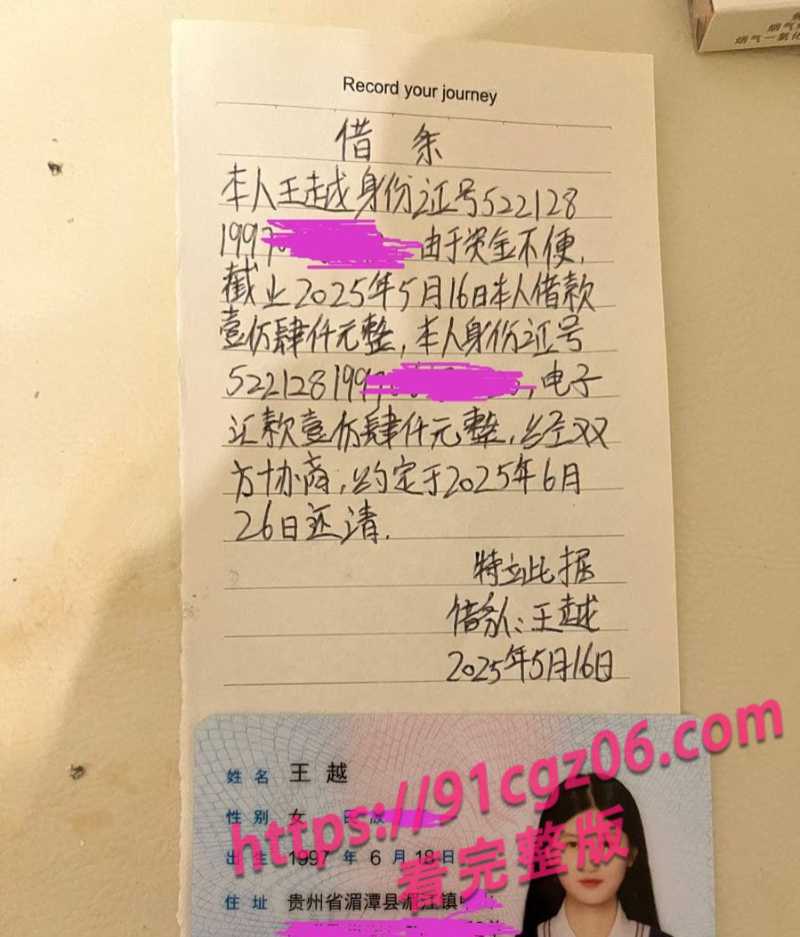 Record your journey
借条
本人王越身份证号522128
1997 由于资金不便,
截止2025年5月16日本人借款
壹仟肆仟元整,本人身份证号
522128199 ,电子
汇款壹仟肆仟元整,当经双
方协商,约定于2025年6月
26日还清.
特立此据
借条人:王越
2025年5月16日
姓名 王越
性别 女
出生 1997 年 6 月 18 日
住址 贵州省湄潭县湄江镇
https://91cgz06.com
看完整版